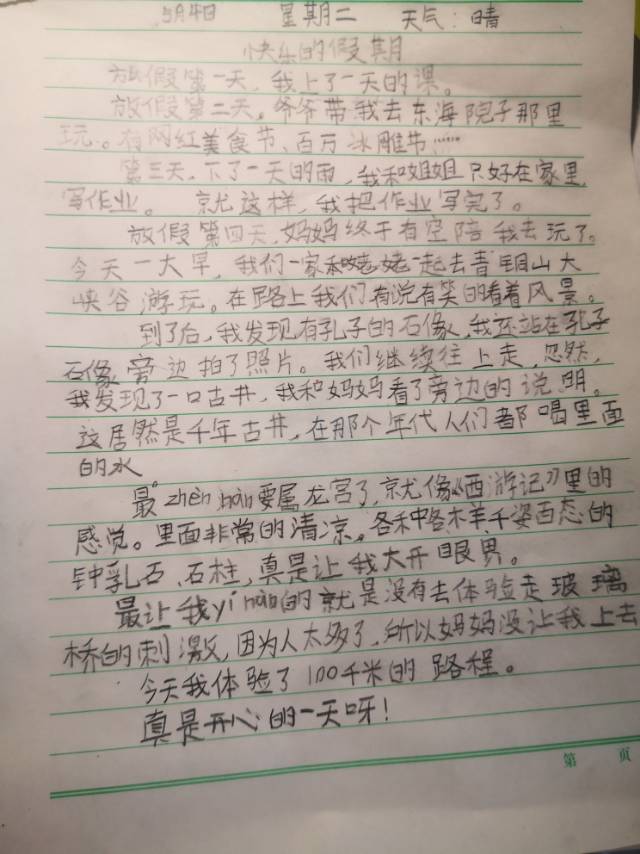 5月4日 星期二 天气:晴
快乐的假期
放假第一天,我上了一天的课。
放假第二天,爷爷带我去东海院子那里
玩。有网红美食节、百万冰雕节……
第三天,下了一天的雨,我和姐姐只好在家里
写作业。 就这样,我把作业写完了。
放假第四天,妈妈终于有空陪我去玩了。
今天一大早,我们一家和姥姥一起去青铜山大
峡谷游玩。在路上我们有说有笑的看着风景。
到了后,我发现有孔子的石像,我还站在孔子
石像旁边拍了照片。我们继续往上走,忽然,
我发现了一口古井,我和妈妈看了旁边的说明。
这居然是千年古井,在那个年代人们都喝里面
的水
最zhèn hàn要属龙宫了,就像《西游记》里的
感觉。里面非常的清凉。各种各木羊千姿百态的
钟乳石、石柱,真是让我大开眼界。
最让我yí hàn的就是没有去体验走玻璃
桥的刺激,因为人太多了,所以妈妈没让我上去
今天我体验了100千米的路程。
真是开心的一天呀!
第 页